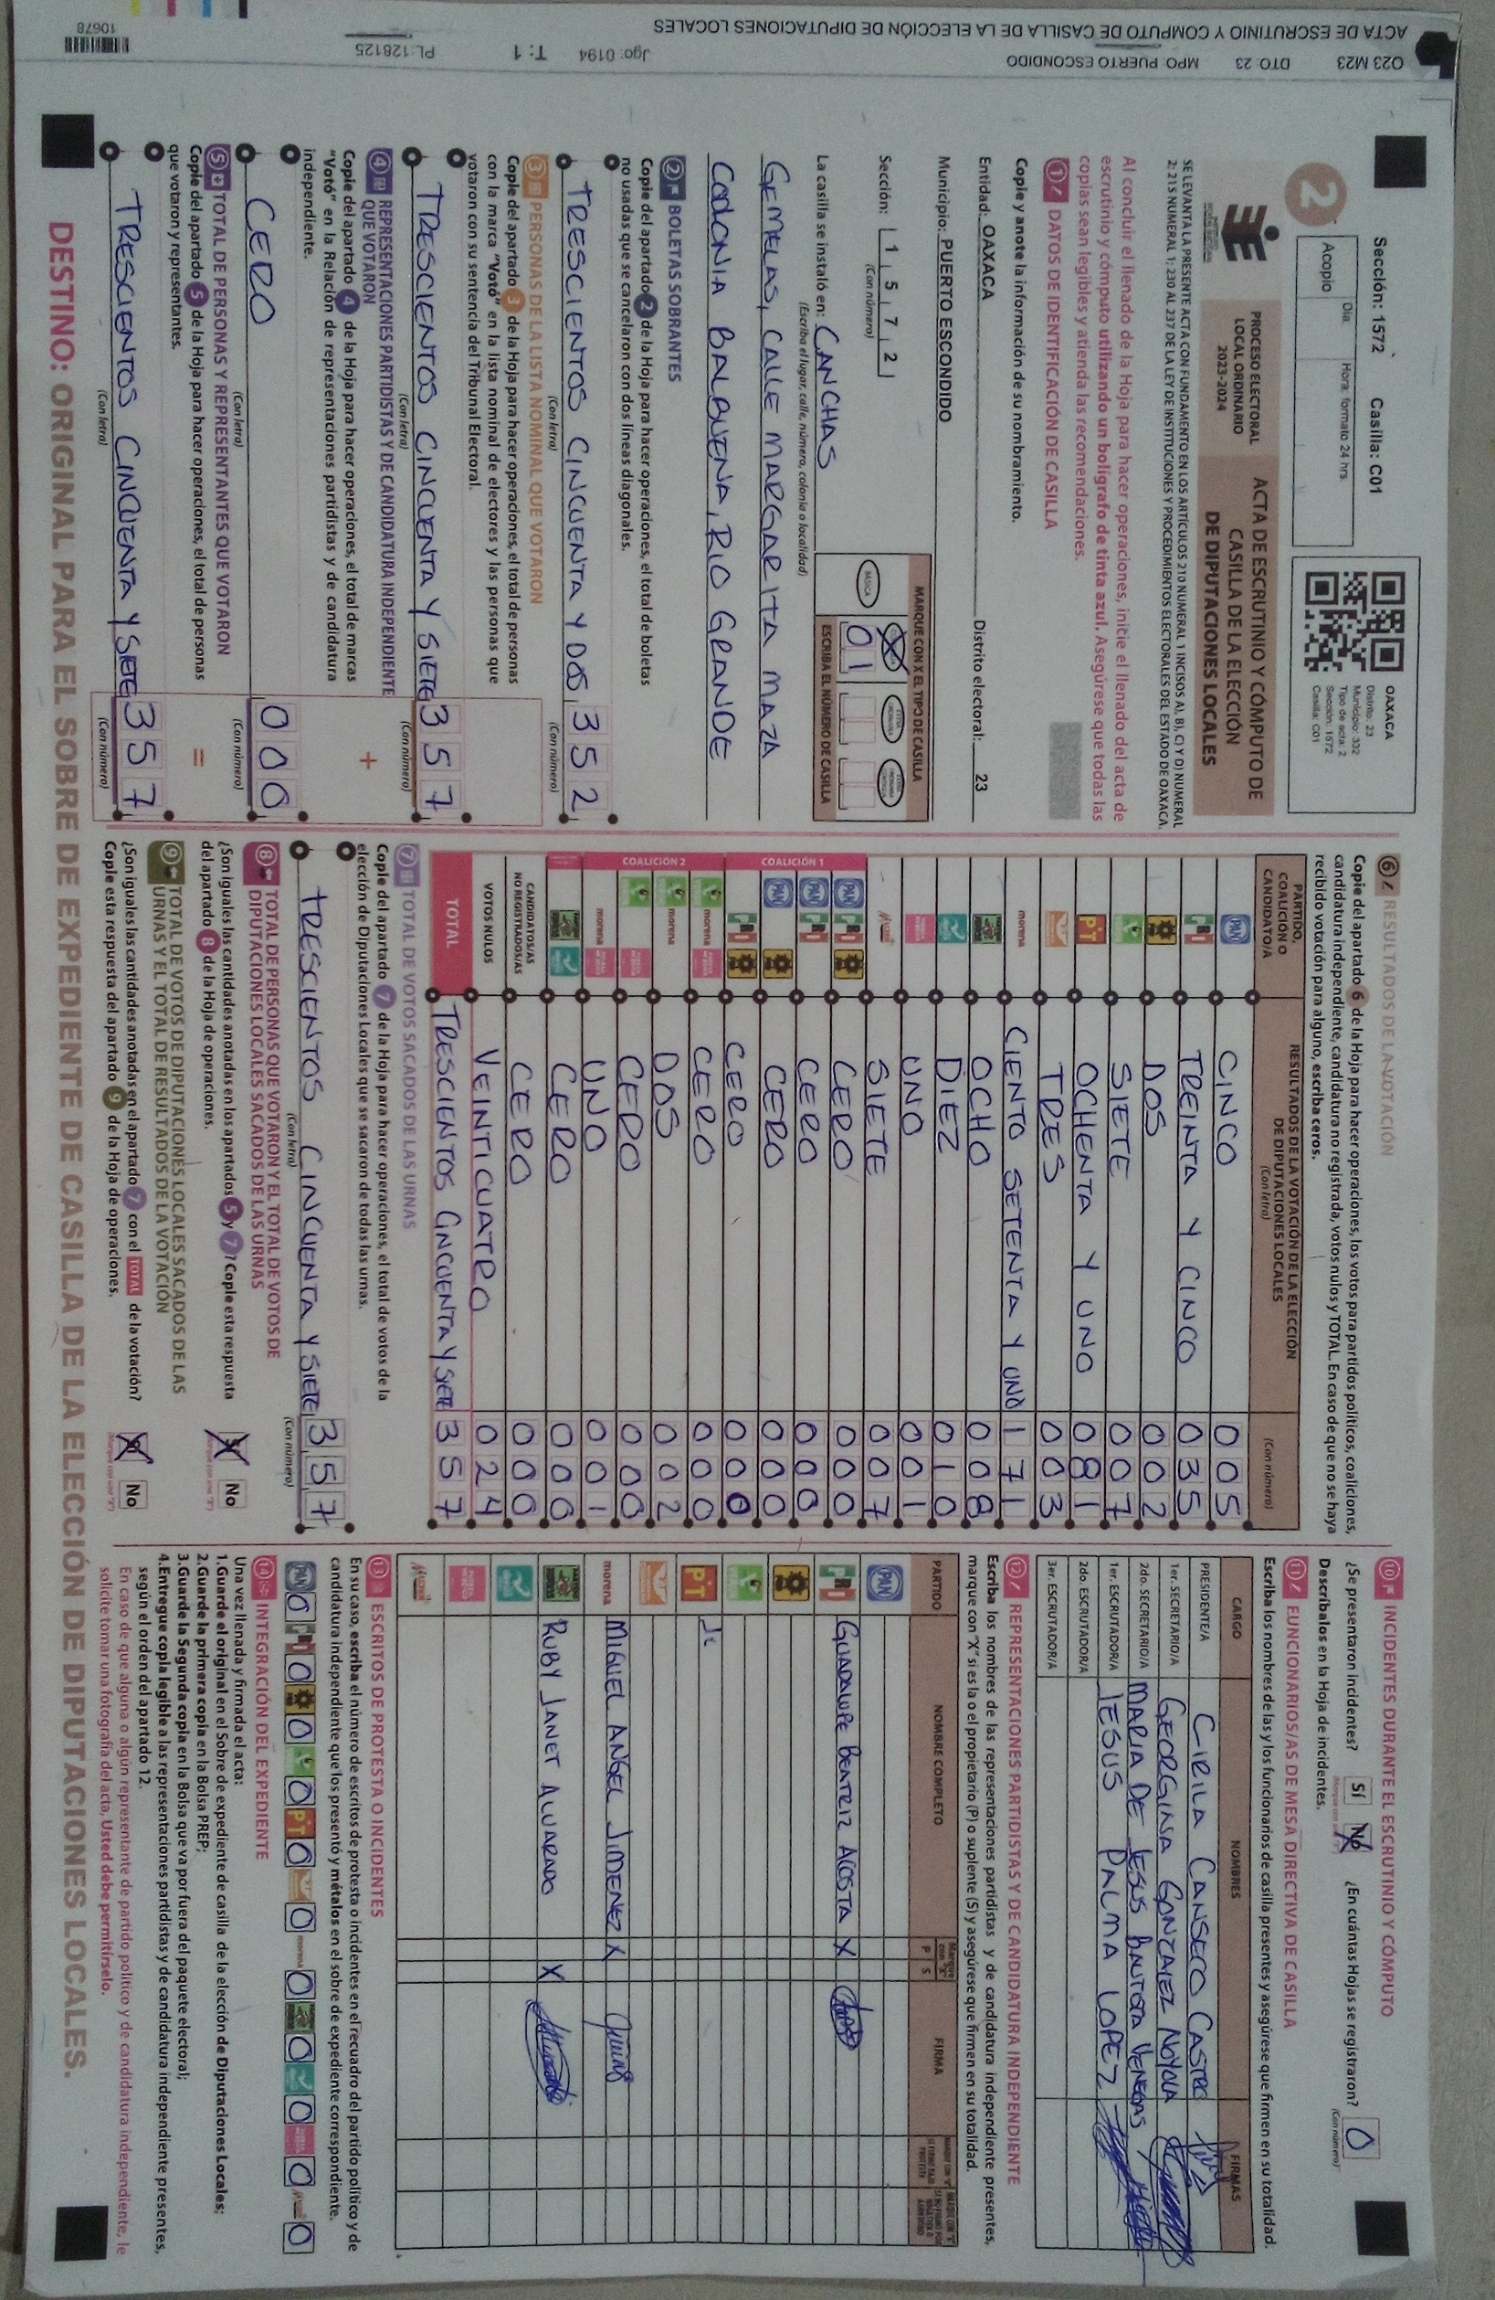 Sección: 1572 Casilla: C01
2
Día: Hora: formato 24 hrs.
Acopio
OAXACA
Distrito: 23
Municipio: 332
Tipo de acta: 2
Sección: 1572
Casilla: C01
PROCESO ELECTORAL
LOCAL ORDINARIO
2023-2024
ACTA DE ESCRUTINIO Y CÓMPUTO DE
CASILLA DE LA ELECCIÓN
DE DIPUTACIONES LOCALES
SE LEVANTA LA PRESENTE ACTA CON FUNDAMENTO EN LOS ARTÍCULOS 210 NUMERAL 1 INCISOS A), B), C) Y D) NUMERAL
2; 215 NUMERAL 1; 230 AL 237 DE LA LEY DE INSTITUCIONES Y PROCEDIMIENTOS ELECTORALES DEL ESTADO DE OAXACA.
Al concluir el llenado de la Hoja para hacer operaciones, inicie el llenado del acta de
escrutinio y cómputo utilizando un bolígrafo de tinta azul. Asegúrese que todas las
copias sean legibles y atienda las recomendaciones.
1 DATOS DE IDENTIFICACIÓN DE CASILLA
Copie y anote la información de su nombramiento.
Entidad: OAXACA Distrito electoral: 23
Municipio: PUERTO ESCONDIDO
Sección: 1 5 7 2
(Con número)
MARQUE CON X EL TIPO DE CASILLA
BÁSICA
ESCRIBA EL NÚMERO DE CASILLA
01
La casilla se instaló en: CANCHAS
(Escriba el lugar, calle, número, colonia o localidad)
GEMELAS, CALLE MARGARITA MAZA
COLONIA BALBUENA, RIO GRANDE
2 BOLETAS SOBRANTES
Copie del apartado 2 de la Hoja para hacer operaciones, el total de boletas
no usadas que se cancelaron con dos líneas diagonales.
TRESCIENTOS CINCUENTA Y DOS 352
(Con letra) (Con número)
3 PERSONAS DE LA LISTA NOMINAL QUE VOTARON
Copie del apartado 3 de la Hoja para hacer operaciones, el total de personas
con la marca "Votó" en la lista nominal de electores y las personas que
votaron con su sentencia del Tribunal Electoral.
TRESCIENTOS CINCUENTA Y SIETE 357
(Con letra) (Con número)
4 REPRESENTACIONES PARTIDISTAS Y DE CANDIDATURA INDEPENDIENTE
QUE VOTARON
Copie del apartado 4 de la Hoja para hacer operaciones, el total de marcas
"Votó" en la Relación de representaciones partidistas y de candidatura
independiente.
+
CERO 000
(Con letra) (Con número)
5 TOTAL DE PERSONAS Y REPRESENTANTES QUE VOTARON
Copie del apartado 5 de la Hoja para hacer operaciones, el total de personas
que votaron y representantes.
=
TRESCIENTOS CINCUENTA Y SIETE 357
(Con letra) (Con número)
6 RESULTADOS DE LA VOTACIÓN
Copie del apartado 6 de la Hoja para hacer operaciones, los votos para partidos políticos, coaliciones,
candidatura independiente, candidatura no registrada, votos nulos y TOTAL. En caso de que no se haya
recibido votación para alguno, escriba ceros.
PARTIDO,
COALICIÓN O
CANDIDATO/A
RESULTADOS DE LA VOTACIÓN DE LA ELECCIÓN
DE DIPUTACIONES LOCALES
(Con letra)
(Con número)
PAN CINCO 005
PRI TREINTA Y CINCO 035
DOS 002
SIETE 007
PT OCHENTA Y UNO 081
TRES 003
morena CIENTO SETENTA Y UNO 171
OCHO 008
DIEZ 010
UNO 001
SIETE 007
COALICIÓN 1
PAN PRI CERO 000
PAN PRI CERO 000
PAN CERO 000
PRI CERO 000
COALICIÓN 2
morena CERO 000
morena DOS 002
CERO 000
morena UNO 001
CERO 000
CANDIDATOS/AS
NO REGISTRADOS/AS CERO 000
VOTOS NULOS VEINTICUATRO 024
TOTAL TRESCIENTOS CINCUENTA Y SIETE 357
7 TOTAL DE VOTOS SACADOS DE LAS URNAS
Copie del apartado 7 de la Hoja para hacer operaciones, el total de votos de la
elección de Diputaciones Locales que se sacaron de todas las urnas.
TRESCIENTOS CINCUENTA Y SIETE 357
(Con letra) (Con número)
8 TOTAL DE PERSONAS QUE VOTARON Y EL TOTAL DE VOTOS DE
DIPUTACIONES LOCALES SACADOS DE LAS URNAS
¿Son iguales las cantidades anotadas en los apartados 5 y 7? Copie esta respuesta
del apartado 8 de la Hoja de operaciones.
X No
9 TOTAL DE VOTOS DE DIPUTACIONES LOCALES SACADOS DE LAS
URNAS Y EL TOTAL DE RESULTADOS DE LA VOTACIÓN
¿Son iguales las cantidades anotadas en el apartado 7 con el TOTAL de la votación?
Copie esta respuesta del apartado 9 de la Hoja de operaciones.
X No
10 INCIDENTES DURANTE EL ESCRUTINIO Y CÓMPUTO
¿Se presentaron incidentes? Sí No ¿En cuántas Hojas se registraron? 0
(Con número)
Descríbalos en la Hoja de incidentes.
11 FUNCIONARIOS/AS DE MESA DIRECTIVA DE CASILLA
Escriba los nombres de las y los funcionarios de casilla presentes y asegúrese que firmen en su totalidad.
CARGO NOMBRES FIRMAS
PRESIDENTE/A CIRILA CANSECO CASTRO
1er. SECRETARIO/A GEORGINA GONZALEZ NOYOLA
2do. SECRETARIO/A MARIA DE JESUS BAUTISTA VENEGAS
1er. ESCRUTADOR/A JESUS PALMA LOPEZ
2do. ESCRUTADOR/A
3er. ESCRUTADOR/A
12 REPRESENTACIONES PARTIDISTAS Y DE CANDIDATURA INDEPENDIENTE
Escriba los nombres de las representaciones partidistas y de candidatura independiente presentes,
marque con "X" si es la o el propietario (P) o suplente (S) y asegúrese que firmen en su totalidad.
PARTIDO NOMBRE COMPLETO P S FIRMA
PAN
PRI GUADALUPE BEATRIZ ACOSTA X
PT
morena MIGUEL ANGEL JIMENEZ X
RUBY JANET ALVARADO X
13 ESCRITOS DE PROTESTA O INCIDENTES
En su caso, escriba el número de escritos de protesta o incidentes en el recuadro del partido político y de
candidatura independiente que los presentó y métalos en el sobre de expediente correspondiente.
PAN 0 PRI 0 0 0 PT 0 0 morena 0 0 0 0 0
14 INTEGRACIÓN DEL EXPEDIENTE
Una vez llenada y firmada el acta:
1.Guarde el original en el Sobre de expediente de casilla de la elección de Diputaciones Locales;
2.Guarde la primera copia en la Bolsa PREP;
3.Guarde la Segunda copia en la Bolsa que va por fuera del paquete electoral;
4.Entregue copia legible a las representaciones partidistas y de candidatura independiente presentes,
según el orden del apartado 12.
En caso de que alguna o algún representante de partido político y de candidatura independiente, le
solicite tomar una fotografía del acta, Usted debe permitírselo.
DESTINO: ORIGINAL PARA EL SOBRE DE EXPEDIENTE DE CASILLA DE LA ELECCIÓN DE DIPUTACIONES LOCALES.
O23 M23 DTO: 23 MPO: PUERTO ESCONDIDO Jgo: 0194 T: 1 PL: 128125
ACTA DE ESCRUTINIO Y CÓMPUTO DE CASILLA DE LA ELECCIÓN DE DIPUTACIONES LOCALES
10678